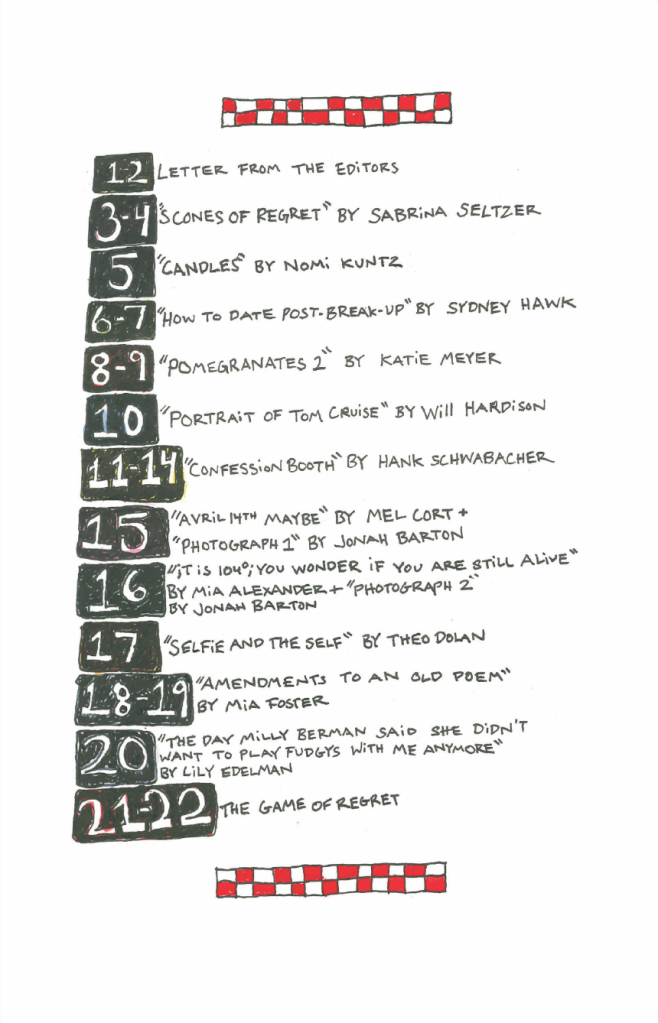 1-2 LETTER FROM THE EDITORS
3-4 "SCONES OF REGRET" BY SABRINA SELTZER
5 "CANDLES" BY NOMi KUNTZ
6-7 "HOW TO DATE POST-BREAK-UP" BY SYDNEY HAWK
8-9 "POMEGRANATES 2" BY KATiE MEYER
10 "PORTRAIT OF TOM CRUISE" BY Will HARDISON
11-14 "CONFESSiON BOOTH" BY HANK SCHWABACHER
15 "AVRIL 14TH MAYBE" BY MEL CORT +
"PHOTOGRAPH 1" BY JONAH BARTON
16 "iT iS 104°; YOU WONDER iF YOU ARE STiLL ALIVE"
BY MiA ALEXANDER + "PHOTOGRAPH 2"
BY JONAH BARTON
17 "SELFiE AND THE SELF" BY THEO DOLAN
18-19 "AMENDMENTS TO AN OLD POEM"
BY MiA FOSTER
20 "THE DAY MILLY BERMAN SAiD SHE DiDN'T
WANT TO PLAY FUDGYS WiTH ME ANYMORE"
BY LiLY EDELMAN
21-22 THE GAME OF REGRET